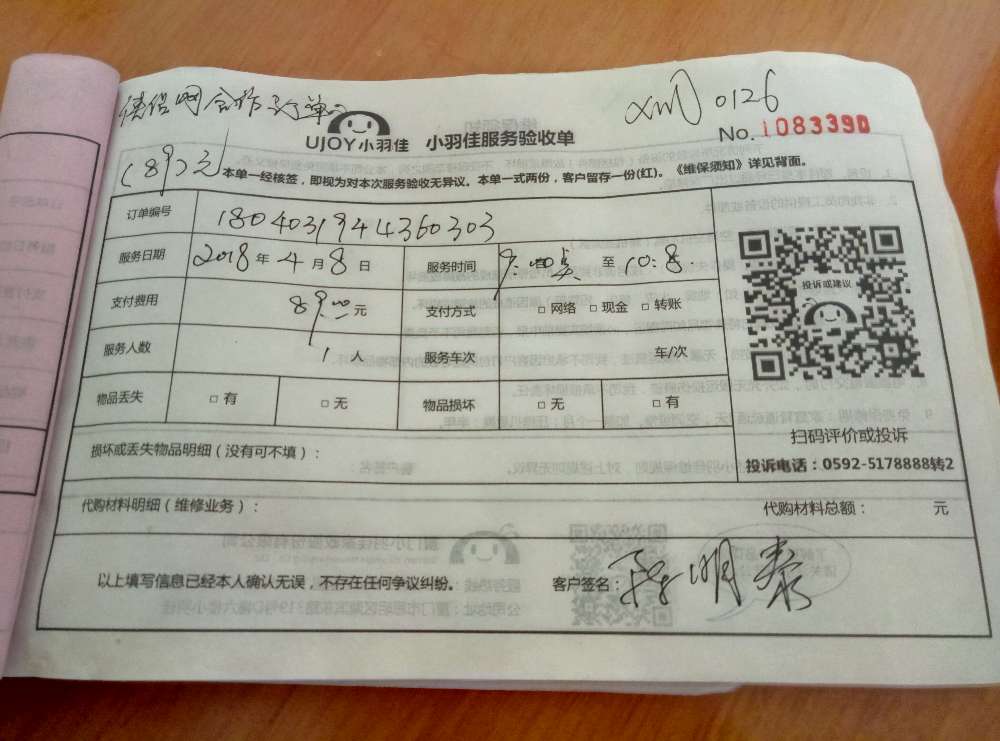 合作订单
XM 0126
UJOY小羽佳 小羽佳服务验收单
No. 1083390
(89)元
本单一经核签，即视为对本次服务验收无异议。本单一式两份，客户留存一份(红)。《维保须知》详见背面。
订单编号 18040319444360303
服务日期 2018年4月8日 服务时间 9:00 至 10:8.
投诉或建议
支付费用 89.00元 支付方式 □网络 □现金 □转账
服务人数 1人 服务车次 车/次
物品丢失 □有 □无 物品损坏 □无 □有
扫码评价或投诉
损坏或丢失物品明细（没有可不填）：
投诉电话：0592-5178888转2
代购材料明细（维修业务）： 代购材料总额： 元
以上填写信息已经本人确认无误，不存在任何争议纠纷。 客户签名： 明泰